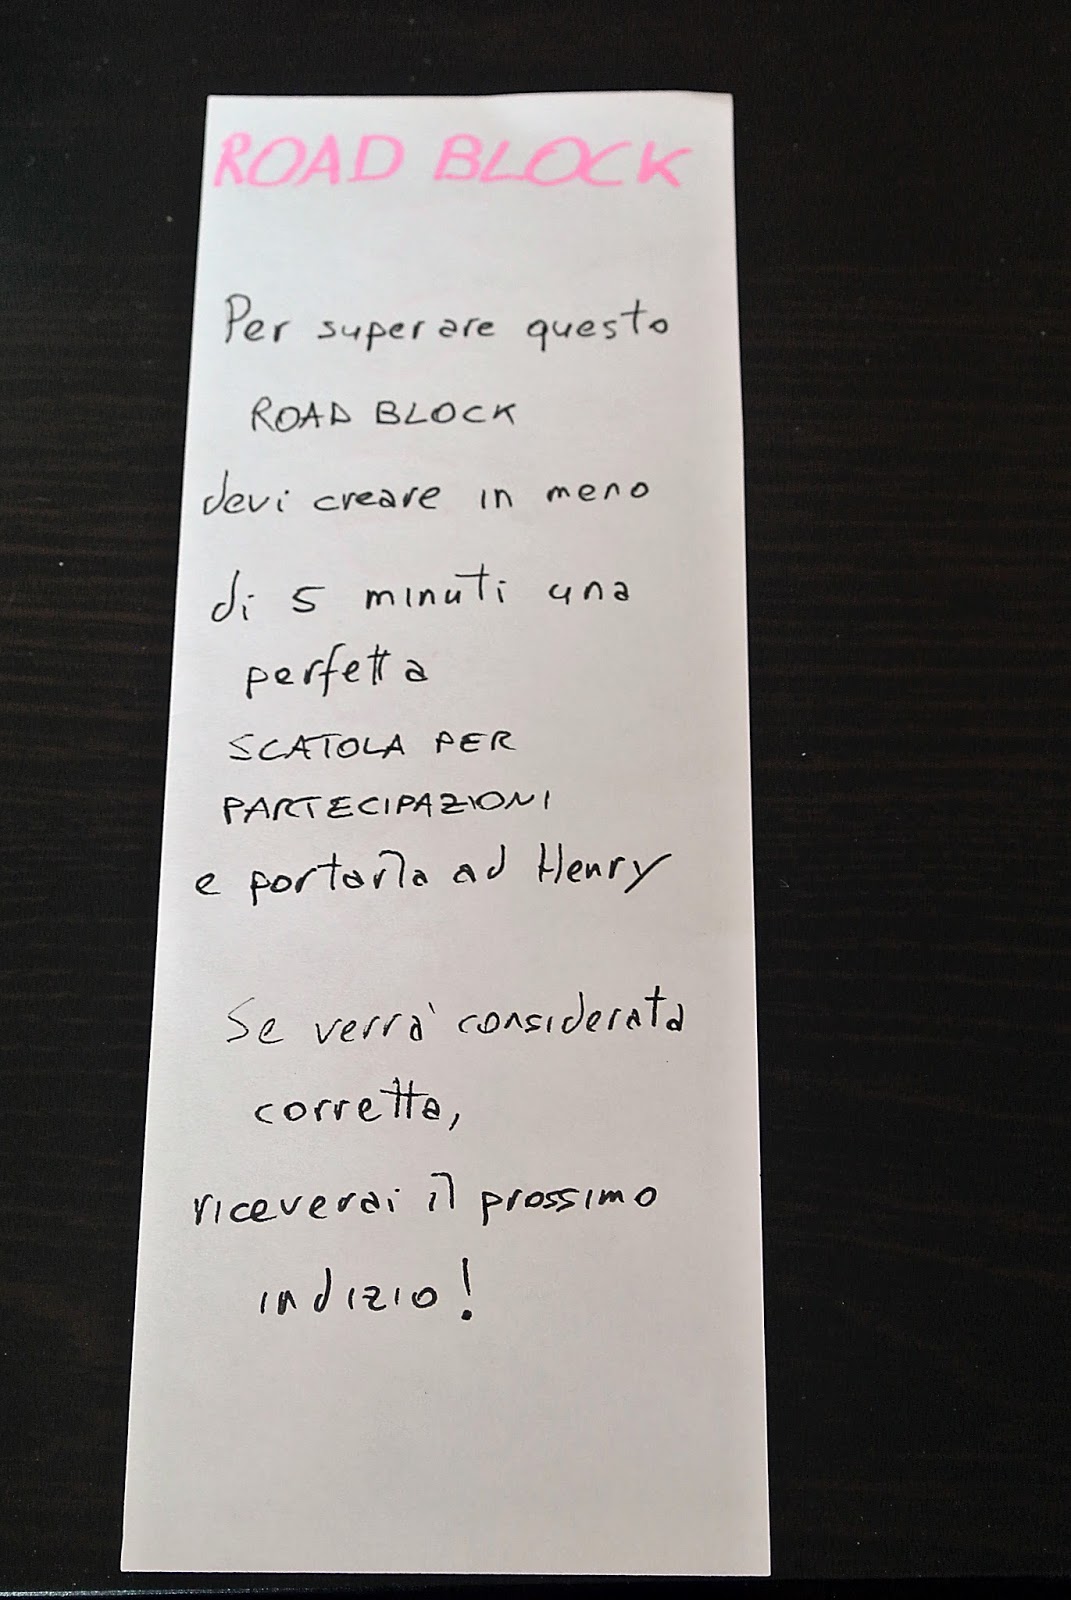 ROAD BLOCK
Per superare questo
ROAD BLOCK
devi creare in meno
di 5 minuti una
perfetta
SCATOLA PER
PARTECIPAZIONI
e portarla ad Henry
Se verrà considerata
corretta,
riceverai il prossimo
indizio!